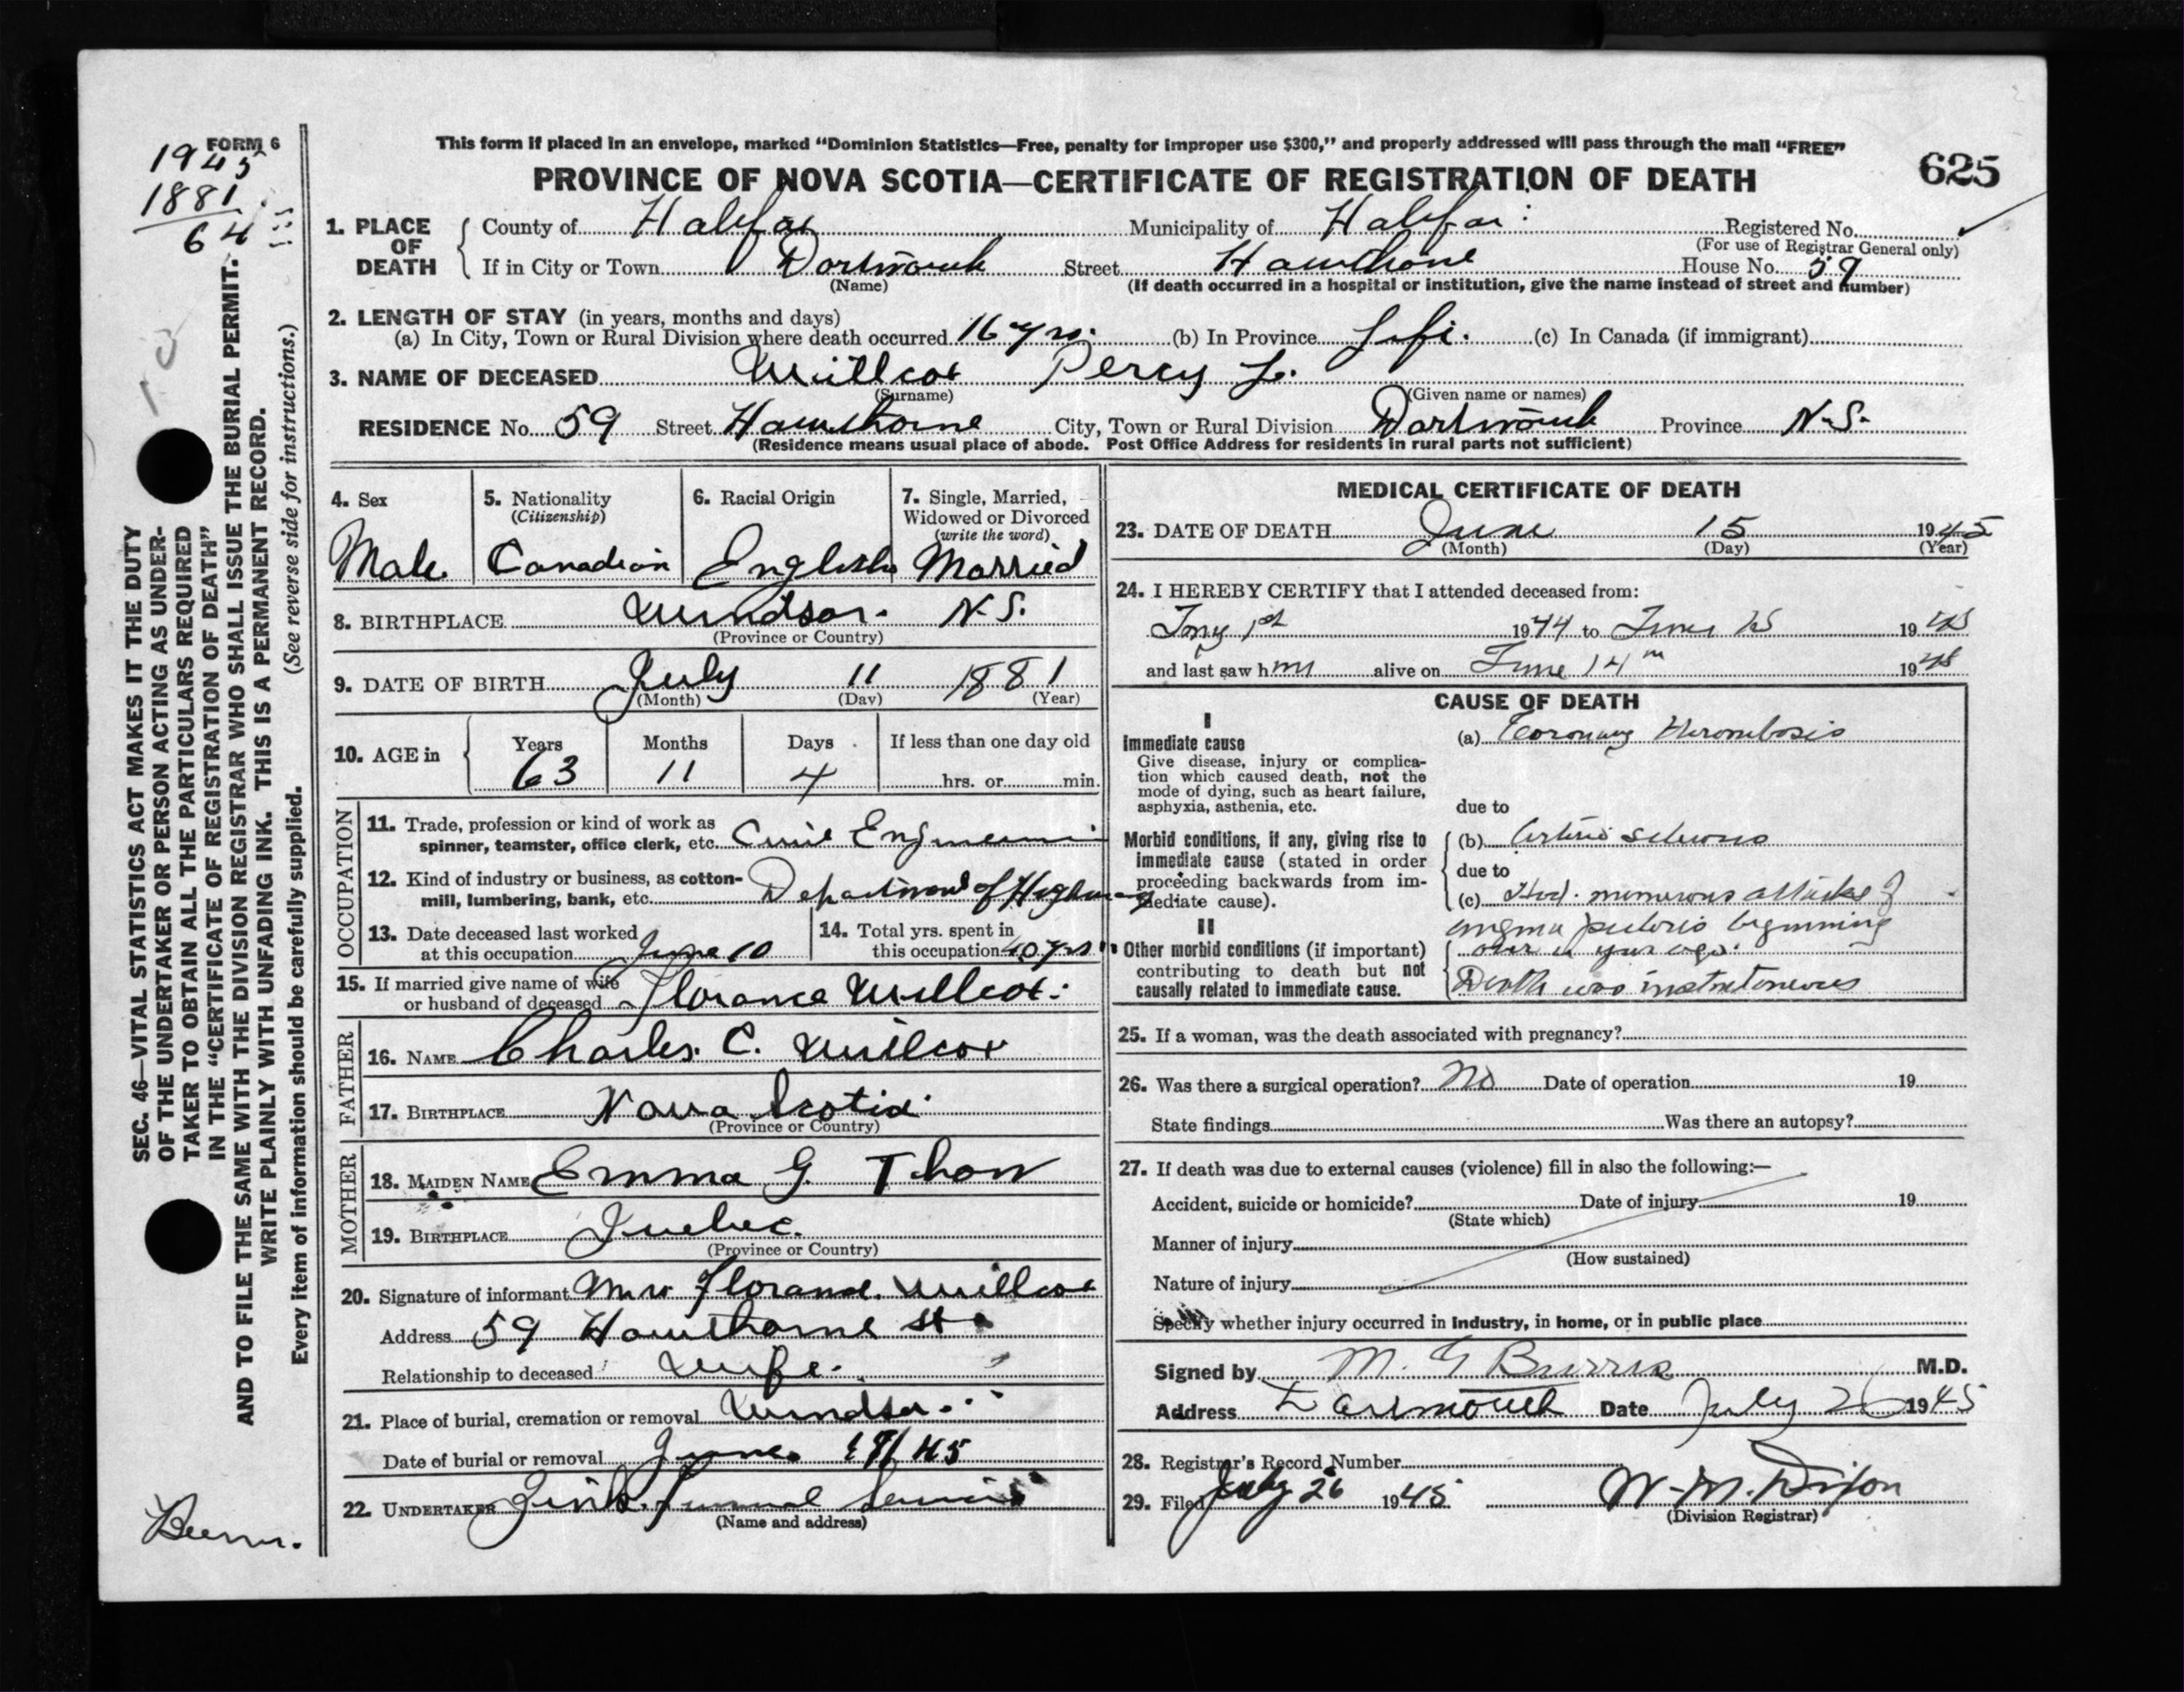 FORM 6
1945
1881
64
This form if placed in an envelope, marked "Dominion Statistics—Free, penalty for improper use $300," and properly addressed will pass through the mail "FREE"
PROVINCE OF NOVA SCOTIA—CERTIFICATE OF REGISTRATION OF DEATH
625
1. PLACE OF DEATH
County of Halifax Municipality of Halifax Registered No.
(For use of Registrar General only)
If in City or Town Dartmouth Street Hawthorne House No. 59
(Name) (If death occurred in a hospital or institution, give the name instead of street and number)
2. LENGTH OF STAY (in years, months and days)
(a) In City, Town or Rural Division where death occurred 16 yrs. (b) In Province Life. (c) In Canada (if immigrant)
3. NAME OF DECEASED Willcox Percy L.
(Surname) (Given name or names)
RESIDENCE No. 59 Street Hawthorne City, Town or Rural Division Dartmouth Province N.S.
(Residence means usual place of abode. Post Office Address for residents in rural parts not sufficient)
4. Sex
Male
5. Nationality
(Citizenship)
Canadian
6. Racial Origin
English
7. Single, Married,
Widowed or Divorced
(write the word)
Married
8. BIRTHPLACE Windsor. N.S.
(Province or Country)
9. DATE OF BIRTH July 11 1881
(Month) (Day) (Year)
10. AGE in Years Months Days If less than one day old
63 11 4 hrs. or min.
OCCUPATION
11. Trade, profession or kind of work as
spinner, teamster, office clerk, etc. Civil Engineer
12. Kind of industry or business, as cotton-
mill, lumbering, bank, etc. Department of Highway
13. Date deceased last worked
at this occupation June 10
14. Total yrs. spent in
this occupation 40 yrs
15. If married give name of wife
or husband of deceased Florance Willcox.
FATHER
16. NAME Charles. C. Willcox
17. BIRTHPLACE Nova Scotia
(Province or Country)
MOTHER
18. MAIDEN NAME Emma G. Thom
19. BIRTHPLACE Quebec.
(Province or Country)
20. Signature of informant Mrs Florance Willcox
Address 59 Hawthorne St
Relationship to deceased Wife.
21. Place of burial, cremation or removal Windsor
Date of burial or removal June 18/45
22. UNDERTAKER Zinks Funeral Service
(Name and address)
MEDICAL CERTIFICATE OF DEATH
23. DATE OF DEATH June 15 1945
(Month) (Day) (Year)
24. I HEREBY CERTIFY that I attended deceased from:
1st 1944 to June 15 1945
and last saw him alive on June 14th 1945
CAUSE OF DEATH
I
Immediate cause
Give disease, injury or complica-
tion which caused death, not the
mode of dying, such as heart failure,
asphyxia, asthenia, etc.
(a) Coronary Thrombosis
due to
Morbid conditions, if any, giving rise to
immediate cause (stated in order
proceeding backwards from im-
mediate cause).
(b) Arterio sclerosis
due to
(c) Had numerous attacks of
angina pectoris beginning
over a year ago.
II
Other morbid conditions (if important)
contributing to death but not
causally related to immediate cause.
Death was instantaneous
25. If a woman, was the death associated with pregnancy?
26. Was there a surgical operation? No Date of operation 19
State findings Was there an autopsy?
27. If death was due to external causes (violence) fill in also the following:—
Accident, suicide or homicide? Date of injury 19
(State which)
Manner of injury
(How sustained)
Nature of injury
Specify whether injury occurred in Industry, in home, or in public place
Signed by M. G Burris M.D.
Address Dartmouth Date July 26 1945
28. Registrar's Record Number
29. Filed July 26 1945 W. M. Dixon
(Division Registrar)
SEC. 46—VITAL STATISTICS ACT MAKES IT THE DUTY
OF THE UNDERTAKER OR PERSON ACTING AS UNDER-
TAKER TO OBTAIN ALL THE PARTICULARS REQUIRED
IN THE "CERTIFICATE OF REGISTRATION OF DEATH"
AND TO FILE THE SAME WITH THE DIVISION REGISTRAR WHO SHALL ISSUE THE BURIAL PERMIT.
WRITE PLAINLY WITH UNFADING INK. THIS IS A PERMANENT RECORD.
Every item of information should be carefully supplied. (See reverse side for instructions.)